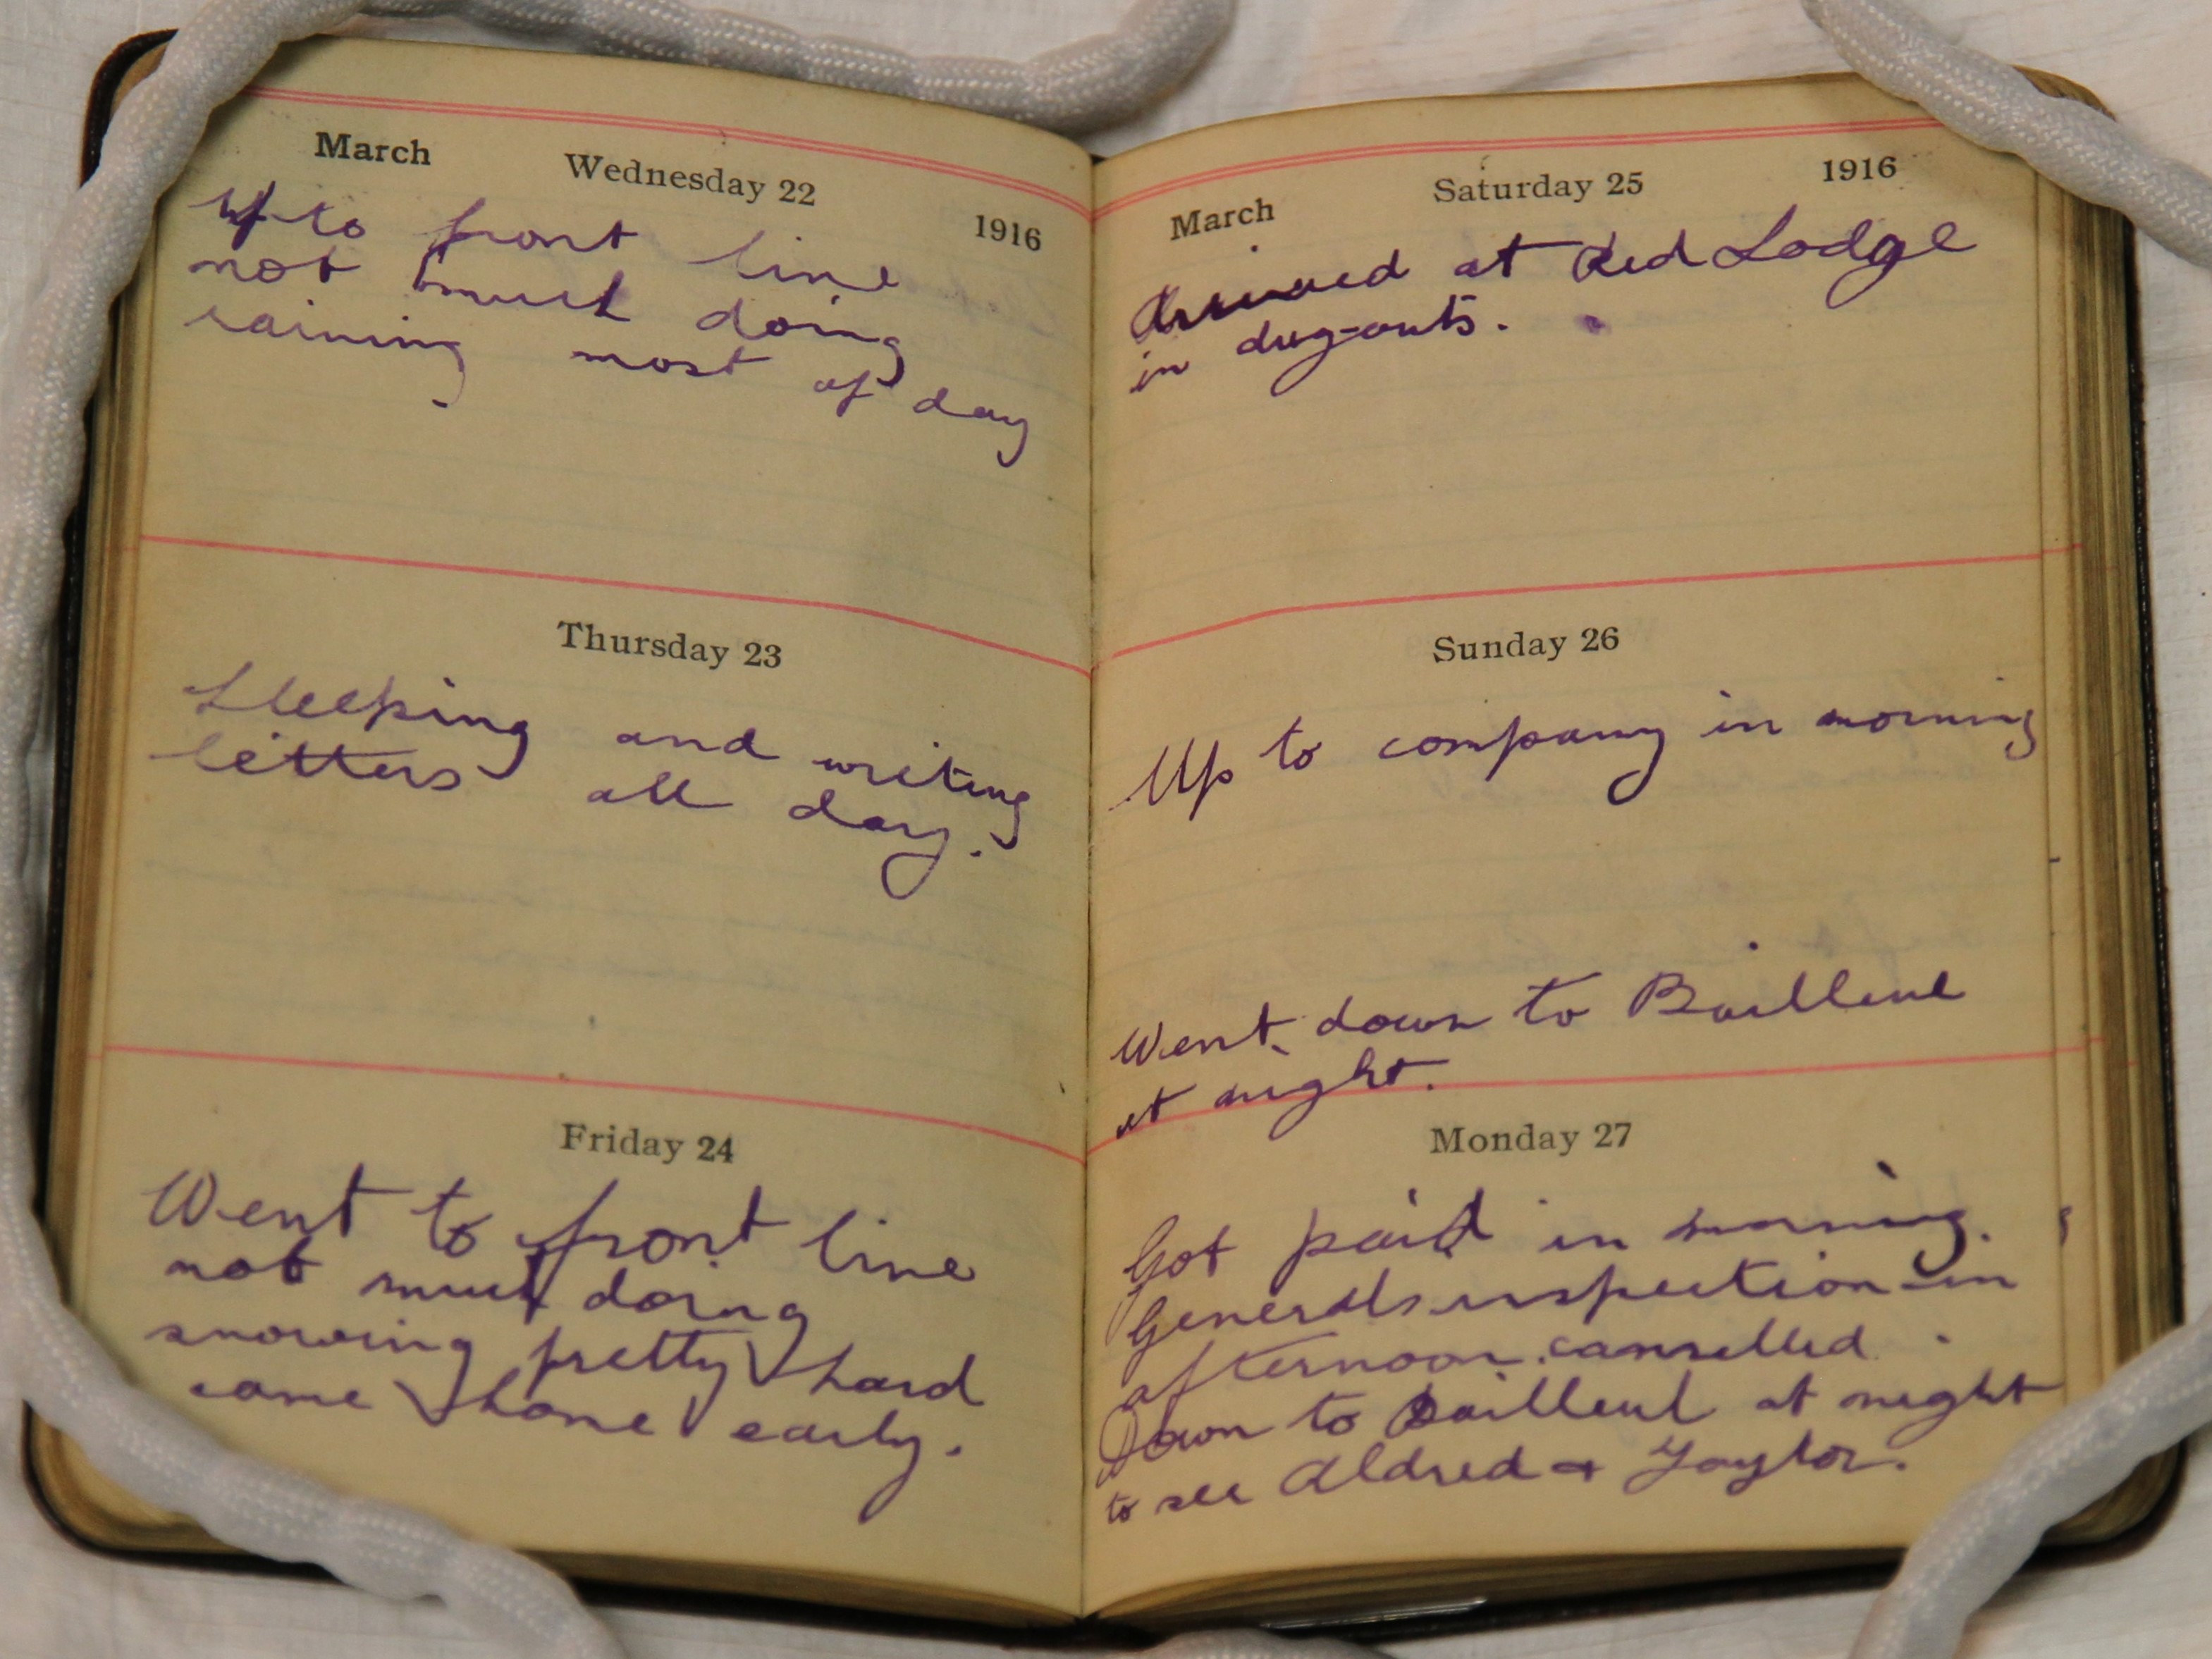 March Wednesday 22 1916
Up to front line
not much doing
raining most of day
Thursday 23
Sleeping and writing
letters all day.
Friday 24
Went to front line
not much doing
snowing pretty hard
came home early.
March Saturday 25 1916
Arrived at Red Lodge
in dug-outs.
Sunday 26
Up to company in morning
Went down to Bailleul
at night.
Monday 27
Got paid in morning.
Generals inspection in
afternoon canselled
Down to Bailleul at night
to see Aldred + Taylor.